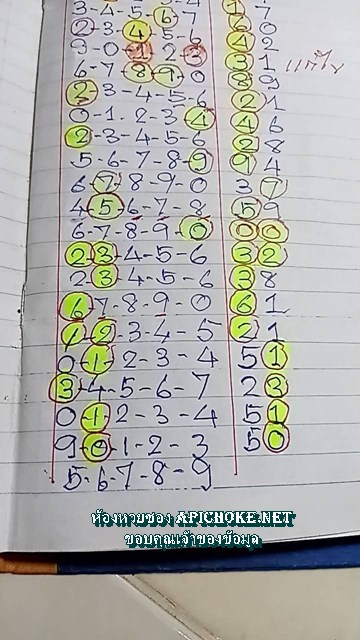 3-4-5-6-7 1 7
2-3-4-5-6 6 0
9-0-1-2-3 4 2
6-7-8-9-0 3 1 แก้ไข
2-3-4-5-6 8 9
0-1-2-3-4 2 1
2-3-4-5-6 4 6
5-6-7-8-9 2 8
6-7-8-9-0 9 4
4-5-6-7-8 3 7
6-7-8-9-0 5 9
2-3-4-5-6 0 0
2-3-4-5-6 3 2
6-7-8-9-0 3 8
1-2-3-4-5 6 1
0-1-2-3-4 2 1
3-4-5-6-7 5 1
0-1-2-3-4 2 3
9-0-1-2-3 5 1
5-6-7-8-9 5 0
ห้องหวยซอง APICHOKE.NET
ขอบคุณเจ้าของข้อมูล